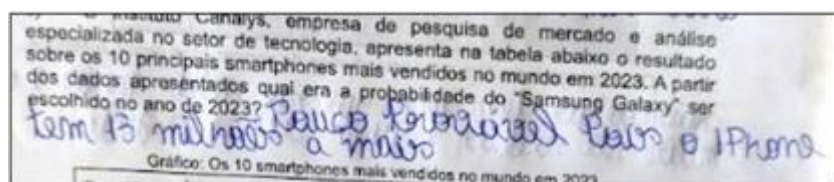 Instituto Canalys, empresa de pesquisa de mercado e análise
especializada no setor de tecnologia, apresenta na tabela abaixo o resultado
sobre os 10 principais smartphones mais vendidos no mundo em 2023. A partir
dos dados apresentados qual era a probabilidade do "Samsung Galaxy" ser
escolhido no ano de 2023? Pouco Provável Pois o IPhone
tem 13 milhões a mais
Gráfico: Os 10 smartphones mais vendidos no mundo em 2023